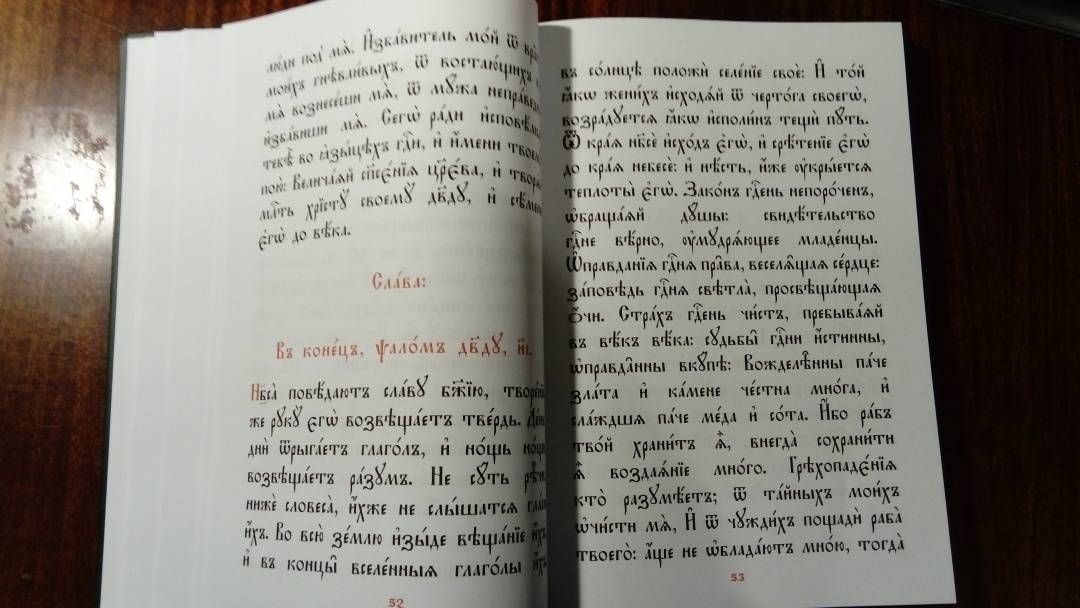 лю́ди под̾ мѧ̀. И҆зба́витель мо́й ѿ
мои́хъ гнѣвли́выхъ, ѿ востаю́щихъ
мѧ̀ вознесе́ши мѧ̀, ѿ мꙋ́жа
и҆зба́виши мѧ̀. Сегѡ̀ ра́ди
тебѣ̀ во ꙗ҆зы́цѣхъ гд҇и, и҆ и҆́мени
пою̀: Велича́ѧй сп҇се́нїѧ цр҇е́ва, и҆
ми́лть хрїстꙋ̀ своемꙋ̀ дв҃дꙋ, и҆
є҆гѡ̀ до вѣ́ка.
Сла́ва:
Въ коне́цъ, ѱало́мъ дв҃дꙋ, и҃і.
Нб҃са̀ повѣ́даютъ сла́вꙋ бж҃їю,
же рꙋкꙋ̀ є҆гѡ̀ возвѣща́етъ тве́рдь.
днѝ ѿрыга́етъ глаго́лъ, и҆ но́щь
возвѣща́етъ ра́зꙋмъ. Не сꙋ́ть
нижѐ словеса̀, и҆́хже не слы́шатсѧ
и҆́хъ. Во всю̀ зе́млю и҆зы́де вѣща́нїе и҆́хъ
и҆ въ концы̑ вселе́нныѧ глаго́лы и҆́хъ
52
въ со́лнцѣ положѝ селе́нїе своѐ: И҆ то́й
ꙗ҆́кѡ жени́хъ и҆сходѧ́й ѿ черто́га своегѡ̀,
возра́дꙋетсѧ ꙗ҆́кѡ и҆споли́нъ тещѝ пꙋ́ть.
Ѿ кра́ѧ нб҃сѐ и҆схо́дъ є҆гѡ̀, и҆ срѣ́тенїе є҆гѡ̀
до кра́ѧ небесѐ: и҆ нѣ́сть, и҆́же ᲂу҆кры́етсѧ
теплоты̀ є҆гѡ̀. Зако́нъ гд҇ень непоро́ченъ,
ѡ҆браща́ѧй дꙋ́шы: свидѣ́тельство
гд҇не вѣ́рно, ᲂу҆мꙋдрѧ́ющее младе́нцы.
Ѡ҆правда̑нїѧ гд҇нѧ пра̑ва, веселѧ́щаѧ се́рдце:
за́повѣдь гд҇нѧ свѣтла̀, просвѣща́ющаѧ
ѻ҆́чи. Стра́хъ гд҇ень чи́стъ, пребыва́ѧй
въ вѣ́къ вѣ́ка: сꙋдьбы̑ гд҇ни и҆́стинны,
ѡ҆правда̑нны вкꙋ́пѣ: Вожделѣ̑нны па́че
зла́та и҆ ка́мене че́стна мно́га, и҆
сла́ждшѧ па́че ме́да и҆ со́та. И҆́бо ра́бъ
тво́й храни́тъ ѧ҆̀, внегда̀ сохрани́ти
ѧ҆̀ воздаѧ́нїе мно́го. Грѣхопаде́нїѧ
кто̀ разꙋмѣ́етъ; ѿ та́йныхъ мои́хъ
ѡ҆чи́сти мѧ̀, И҆ ѿ чꙋжди́хъ пощадѝ раба̀
твоего̀: а҆́ще не ѡ҆блада́ютъ мно́ю, тогда̀
53